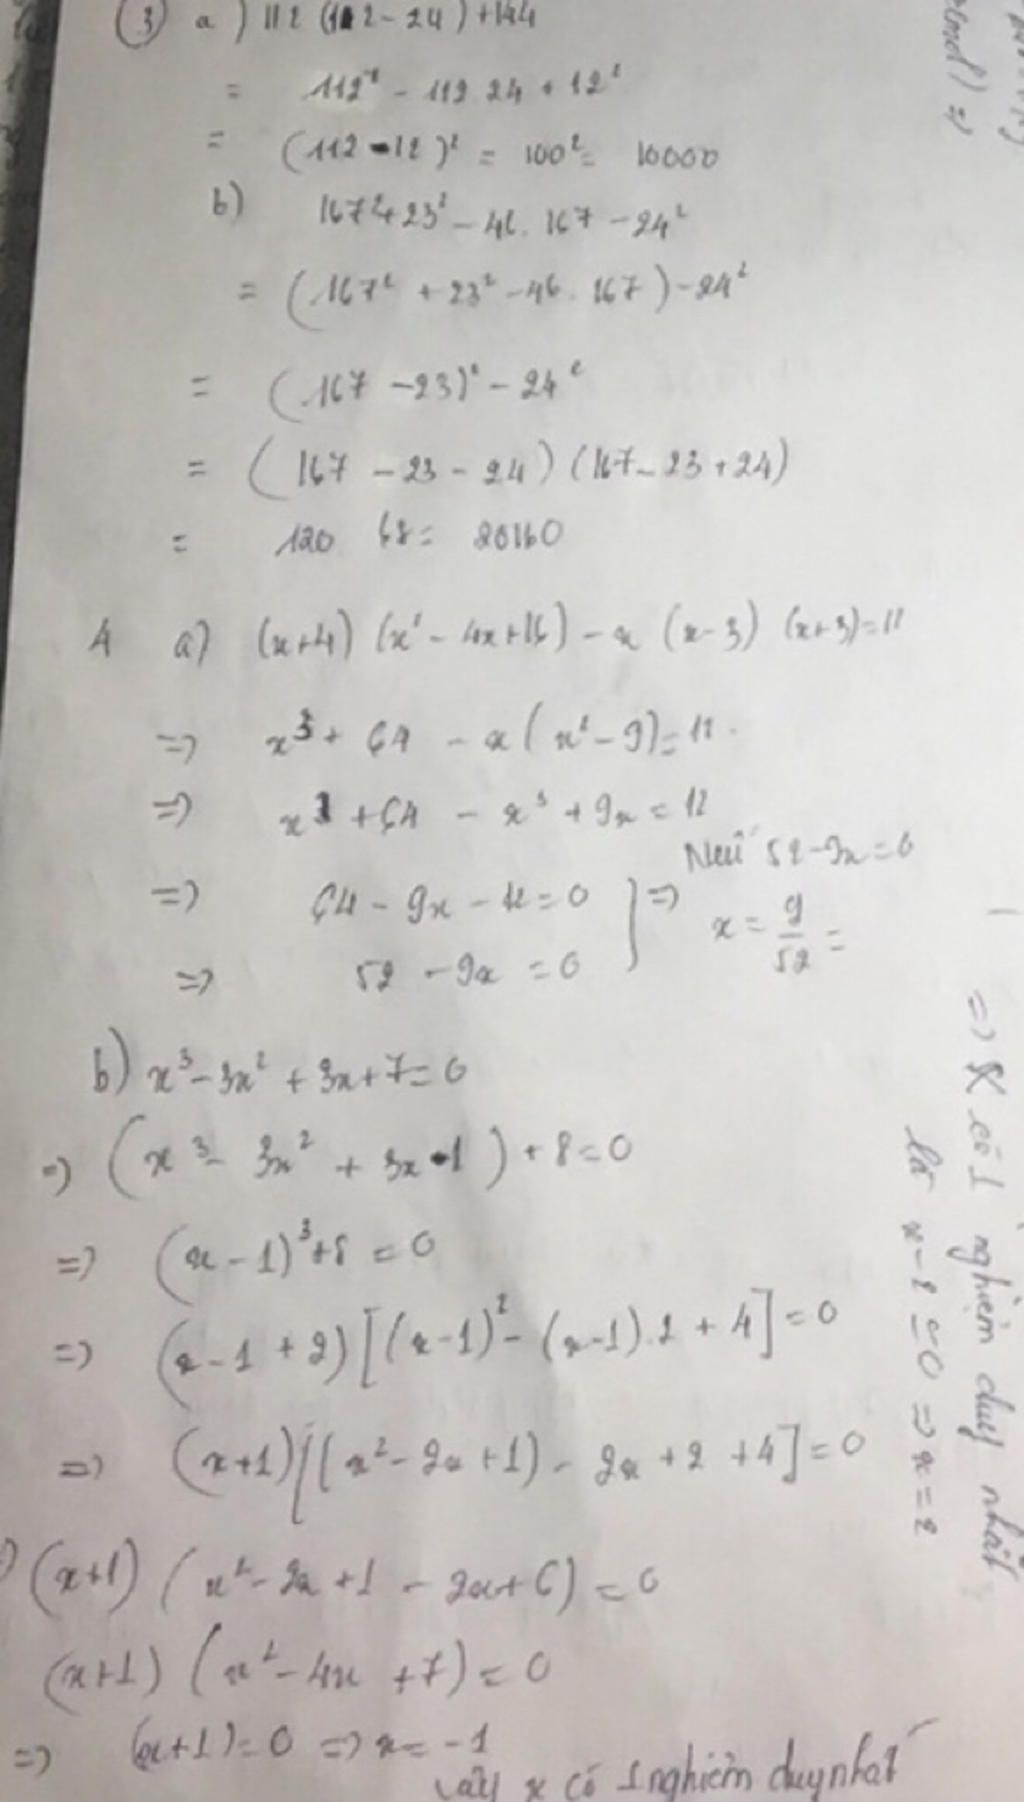 ③ a) 112 (112 - 24) + 144
= 112² - 112 24 + 12²
= (112 - 12)² = 100² = 10000
b) 167² + 23² - 46. 167 - 24²
= (167² + 23² - 46. 167) - 24²
= (167 - 23)² - 24²
= (167 - 23 - 24) (167 - 23 + 24)
= 120 68 = 20160
4 a) (x+4) (x² - 4x + 16) - x (x-3) (x+3) = 12
=> x³ + 64 - x (x² - 9) = 12.
=> x³ + 64 - x³ + 9x = 12
=> 64 - 9x - 12 = 0
=> 52 - 9x = 0
=> Nếu 52 - 9x = 0
x = 9/52 =
b) x³ - 3x² + 3x + 7 = 0
=> (x³ - 3x² + 3x - 1) + 8 = 0
=> (x - 1)³ + 8 = 0
=> (x - 1 + 2) [(x-1)² - (x-1).2 + 4] = 0
=> (x+1) [(x² - 2x + 1) - 2x + 2 + 4] = 0
(x+1) (x² - 2x + 1 - 2x + 6) = 0
(x+1) (x² - 4x + 7) = 0
=> (x+1) = 0 => x = -1
Vậy x có 1 nghiệm duy nhất
=> x có 1 nghiệm duy nhất
là x - 2 = 0 => x = 2